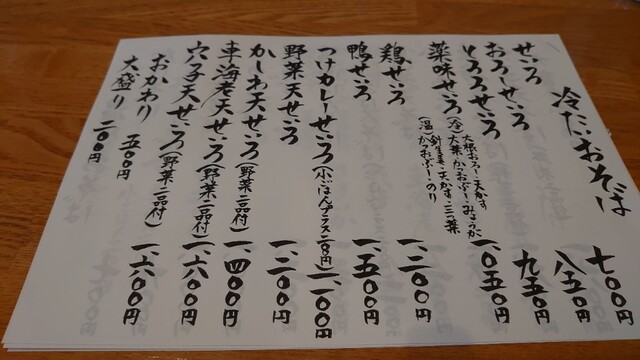 冷たいおそば
せいろ 七〇〇円
おろしせいろ 八五〇円
とろろせいろ 九五〇円
薬味せいろ 一、〇五〇円
(冷)大根おろし・天かす
大葉・かつおぶし・みょうが
(温)針生姜・天かす・三つ葉
かつおぶし・のり
鶏せいろ 一、二〇〇円
鴨せいろ 一、五〇〇円
つけカレーせいろ(小ごはんプラス二〇〇円) 一、一〇〇円
野菜天せいろ 一、二〇〇円
かしわ天せいろ(野菜二品付) 一、四〇〇円
車海老天せいろ(野菜二品付) 一、六〇〇円
穴子天せいろ(野菜二品付) 一、六〇〇円
おかわり 五〇〇円
大盛り 二〇〇円